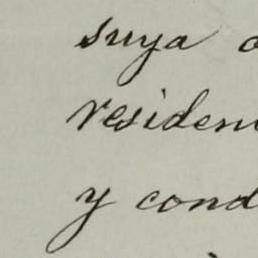 suya
residen
y cond